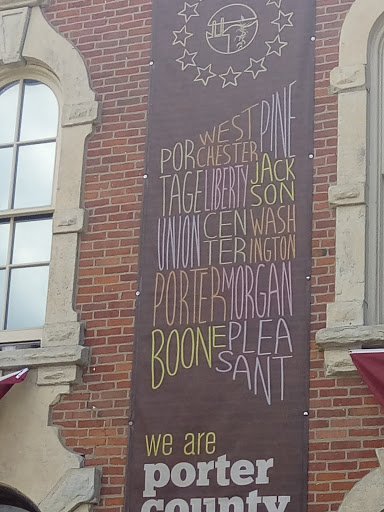 PORTAGE
WESTCHESTER
PINE
LIBERTY
JACKSON
UNION
CENTER
WASHINGTON
PORTER
MORGAN
BOONE
PLEASANT
we are
porter
county